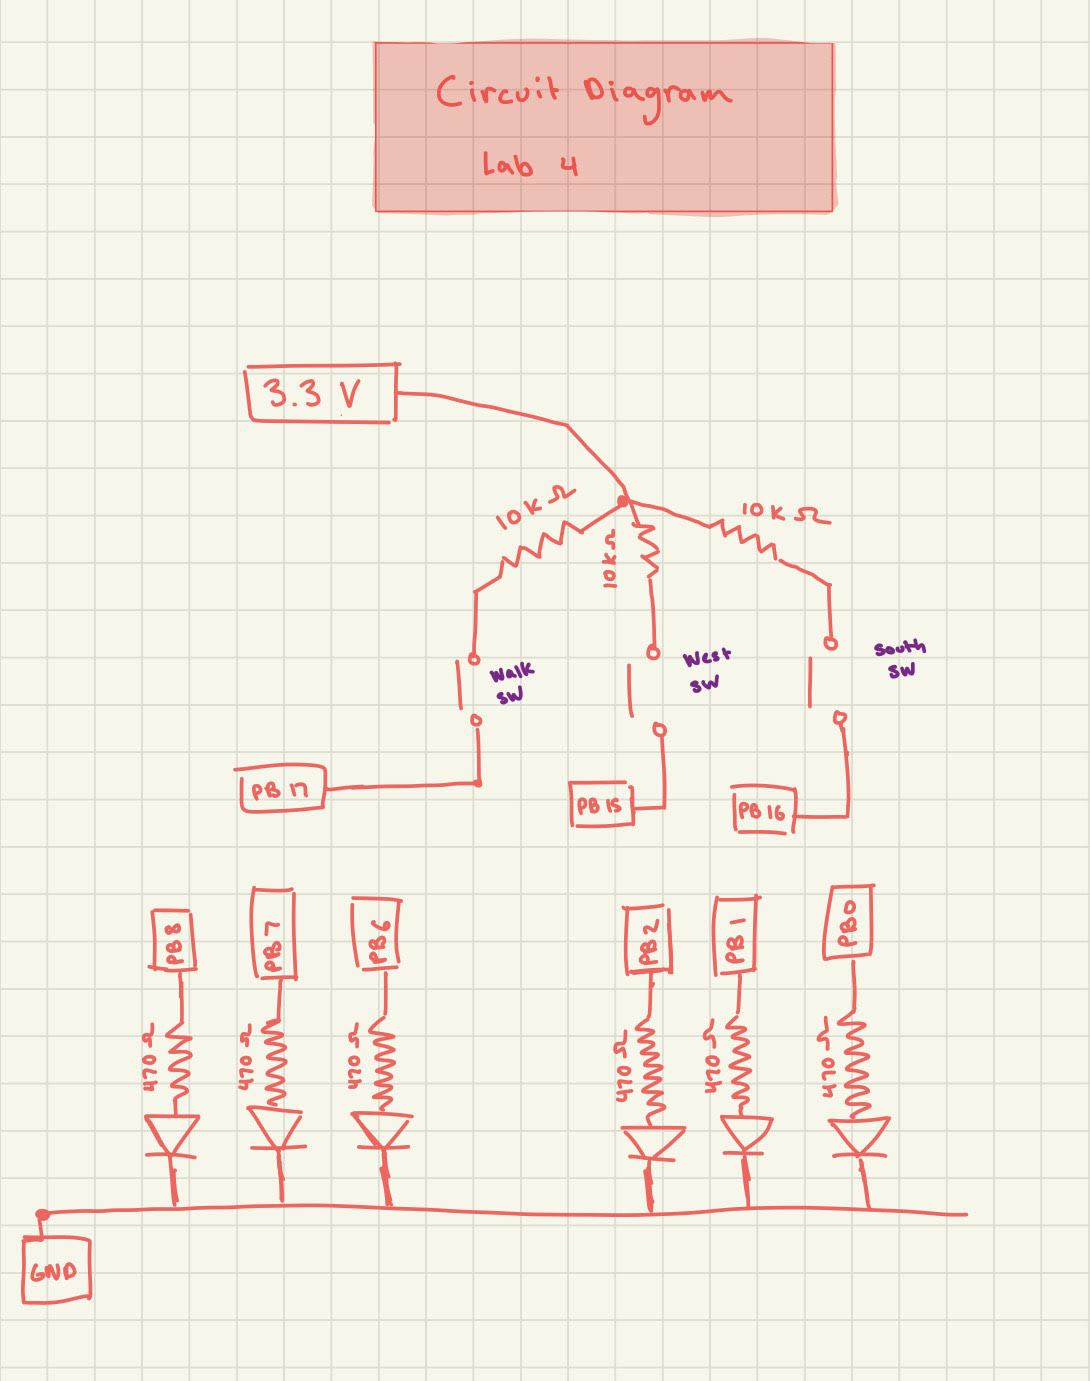 Circuit Diagram
Lab 4
3.3 V
10K Ω
10K Ω
10K Ω
Walk
SW
West
SW
South
SW
PB 17
PB 15
PB 16
PB8
PB7
PB6
PB2
PB1
PB0
470 Ω
470 Ω
470 Ω
470 Ω
470 Ω
470 Ω
GND